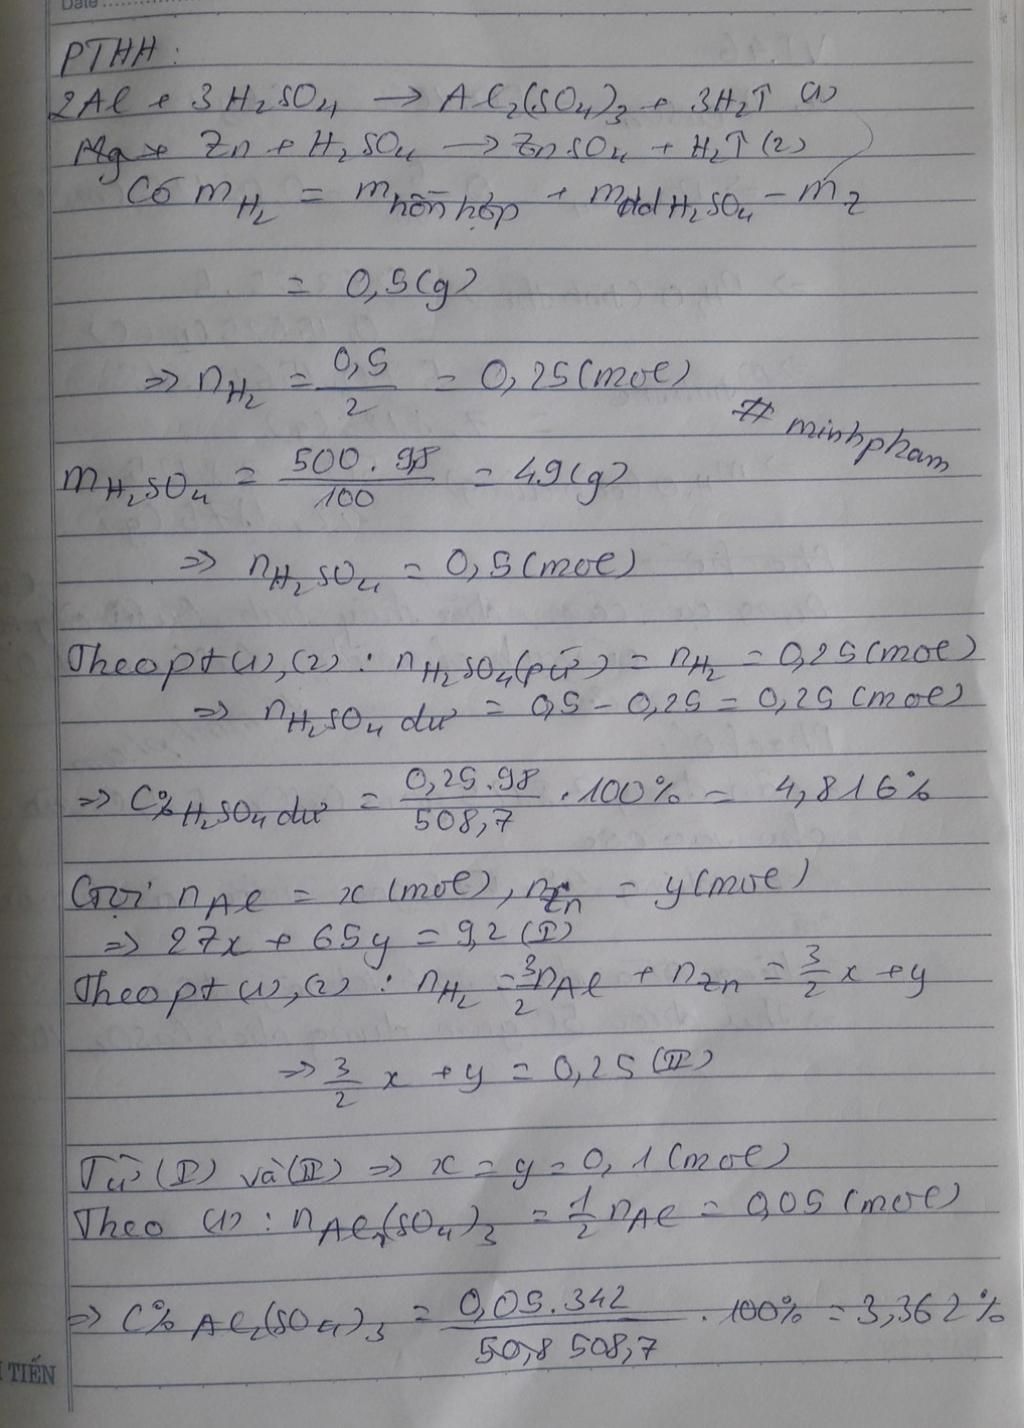 Date
PTHH:
2Al + 3H₂SO₄ → Al₂(SO₄)₃ + 3H₂↑ (1)
Zn + H₂SO₄ → ZnSO₄ + H₂↑ (2)
Có m H₂ = m hỗn hợp + m dd H₂SO₄ - m Z
= 0,5(g)
⇒ n H₂ = 0,5/2 = 0,25(mol)
# minhpham
m H₂SO₄ = 500.9,8/100 = 49(g)
⇒ n H₂SO₄ = 0,5(mol)
Theo pt (1), (2): n H₂SO₄(pứ) = n H₂ = 0,25(mol)
⇒ n H₂SO₄ dư = 0,5 - 0,25 = 0,25 (mol)
⇒ C% H₂SO₄ dư = 0,25.98/508,7 . 100% = 4,816%
Gọi n Al = x (mol), n Zn = y(mol)
⇒ 27x + 65y = 9,2 (I)
Theo pt (1), (2): n H₂ = 3/2 n Al + n Zn = 3/2 x + y
⇒ 3/2 x + y = 0,25 (II)
Từ (I) và (II) ⇒ x = y = 0,1(mol)
Theo (1): n Al₂(SO₄)₃ = 1/2 n Al = 0,05 (mol)
⇒ C% Al₂(SO₄)₃ = 0,05.342/508,7 . 100% = 3,362%
TIẾN